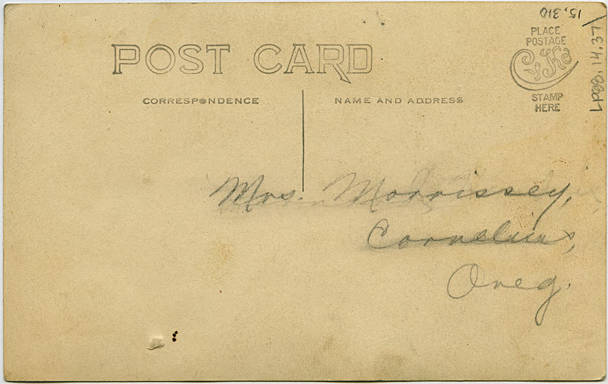 POST CARD
CORRESPONDENCE
NAME AND ADDRESS
PLACE
POSTAGE
STAMP
HERE
15,310
Mrs. Morrissey,
Cornelius,
Oreg.